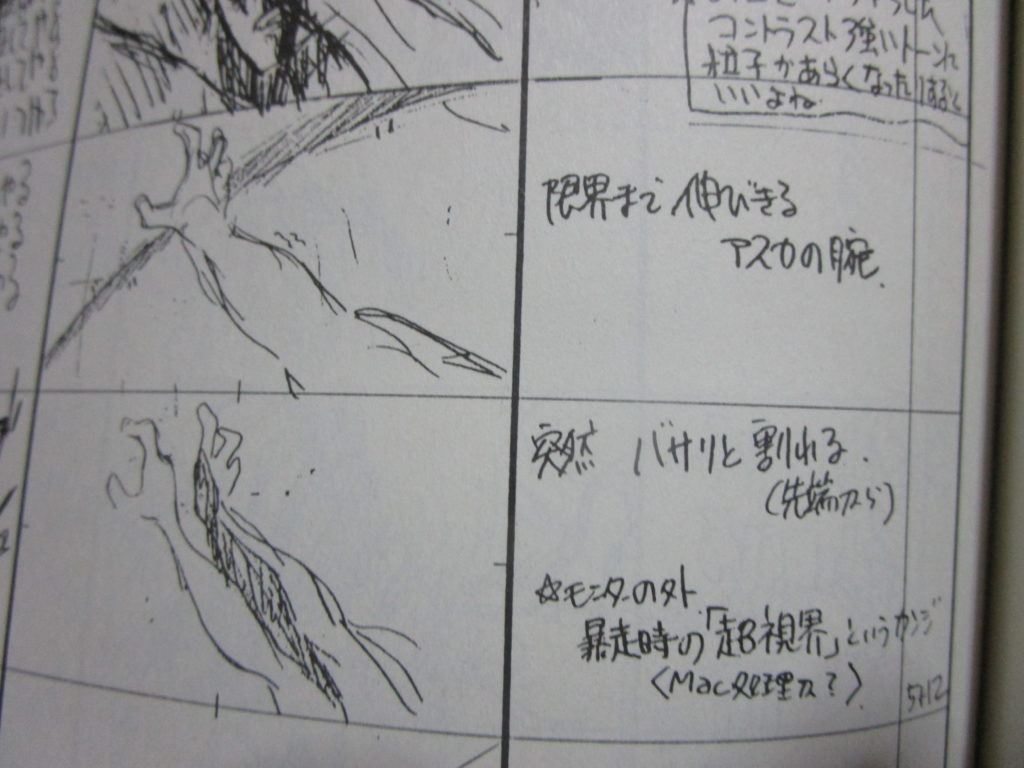 コントラスト強いトーンで
粒子があらくなった
いいよね
限界まで伸びきる
アスカの腕.
突然 バサリと割れる.
(先端から)
☆モニターの外.
暴走時の「超視界」というカンジ
〈Mac処理か?〉
5+12